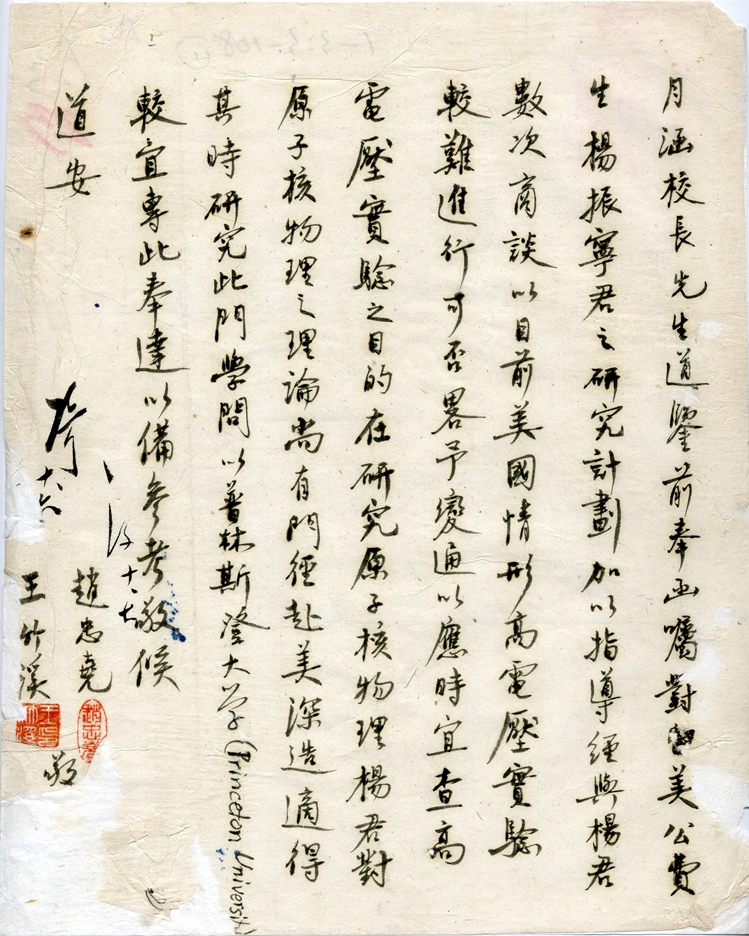 月涵校長先生道鑒前奉函囑對美公費
生楊振寧君之研究計劃加以指導經與楊君
數次商談以目前美國情形高電壓實驗
較難進行可否畧予變通以應時宜查高
電壓實驗之目的在研究原子核物理楊君對
原子核物理之理論尚有門徑赴美深造適得
其時研究此門學問以普林斯登大学(Princeton Universit
較宜專此奉達以備參考敬候
道安
趙忠堯
王竹溪
敬